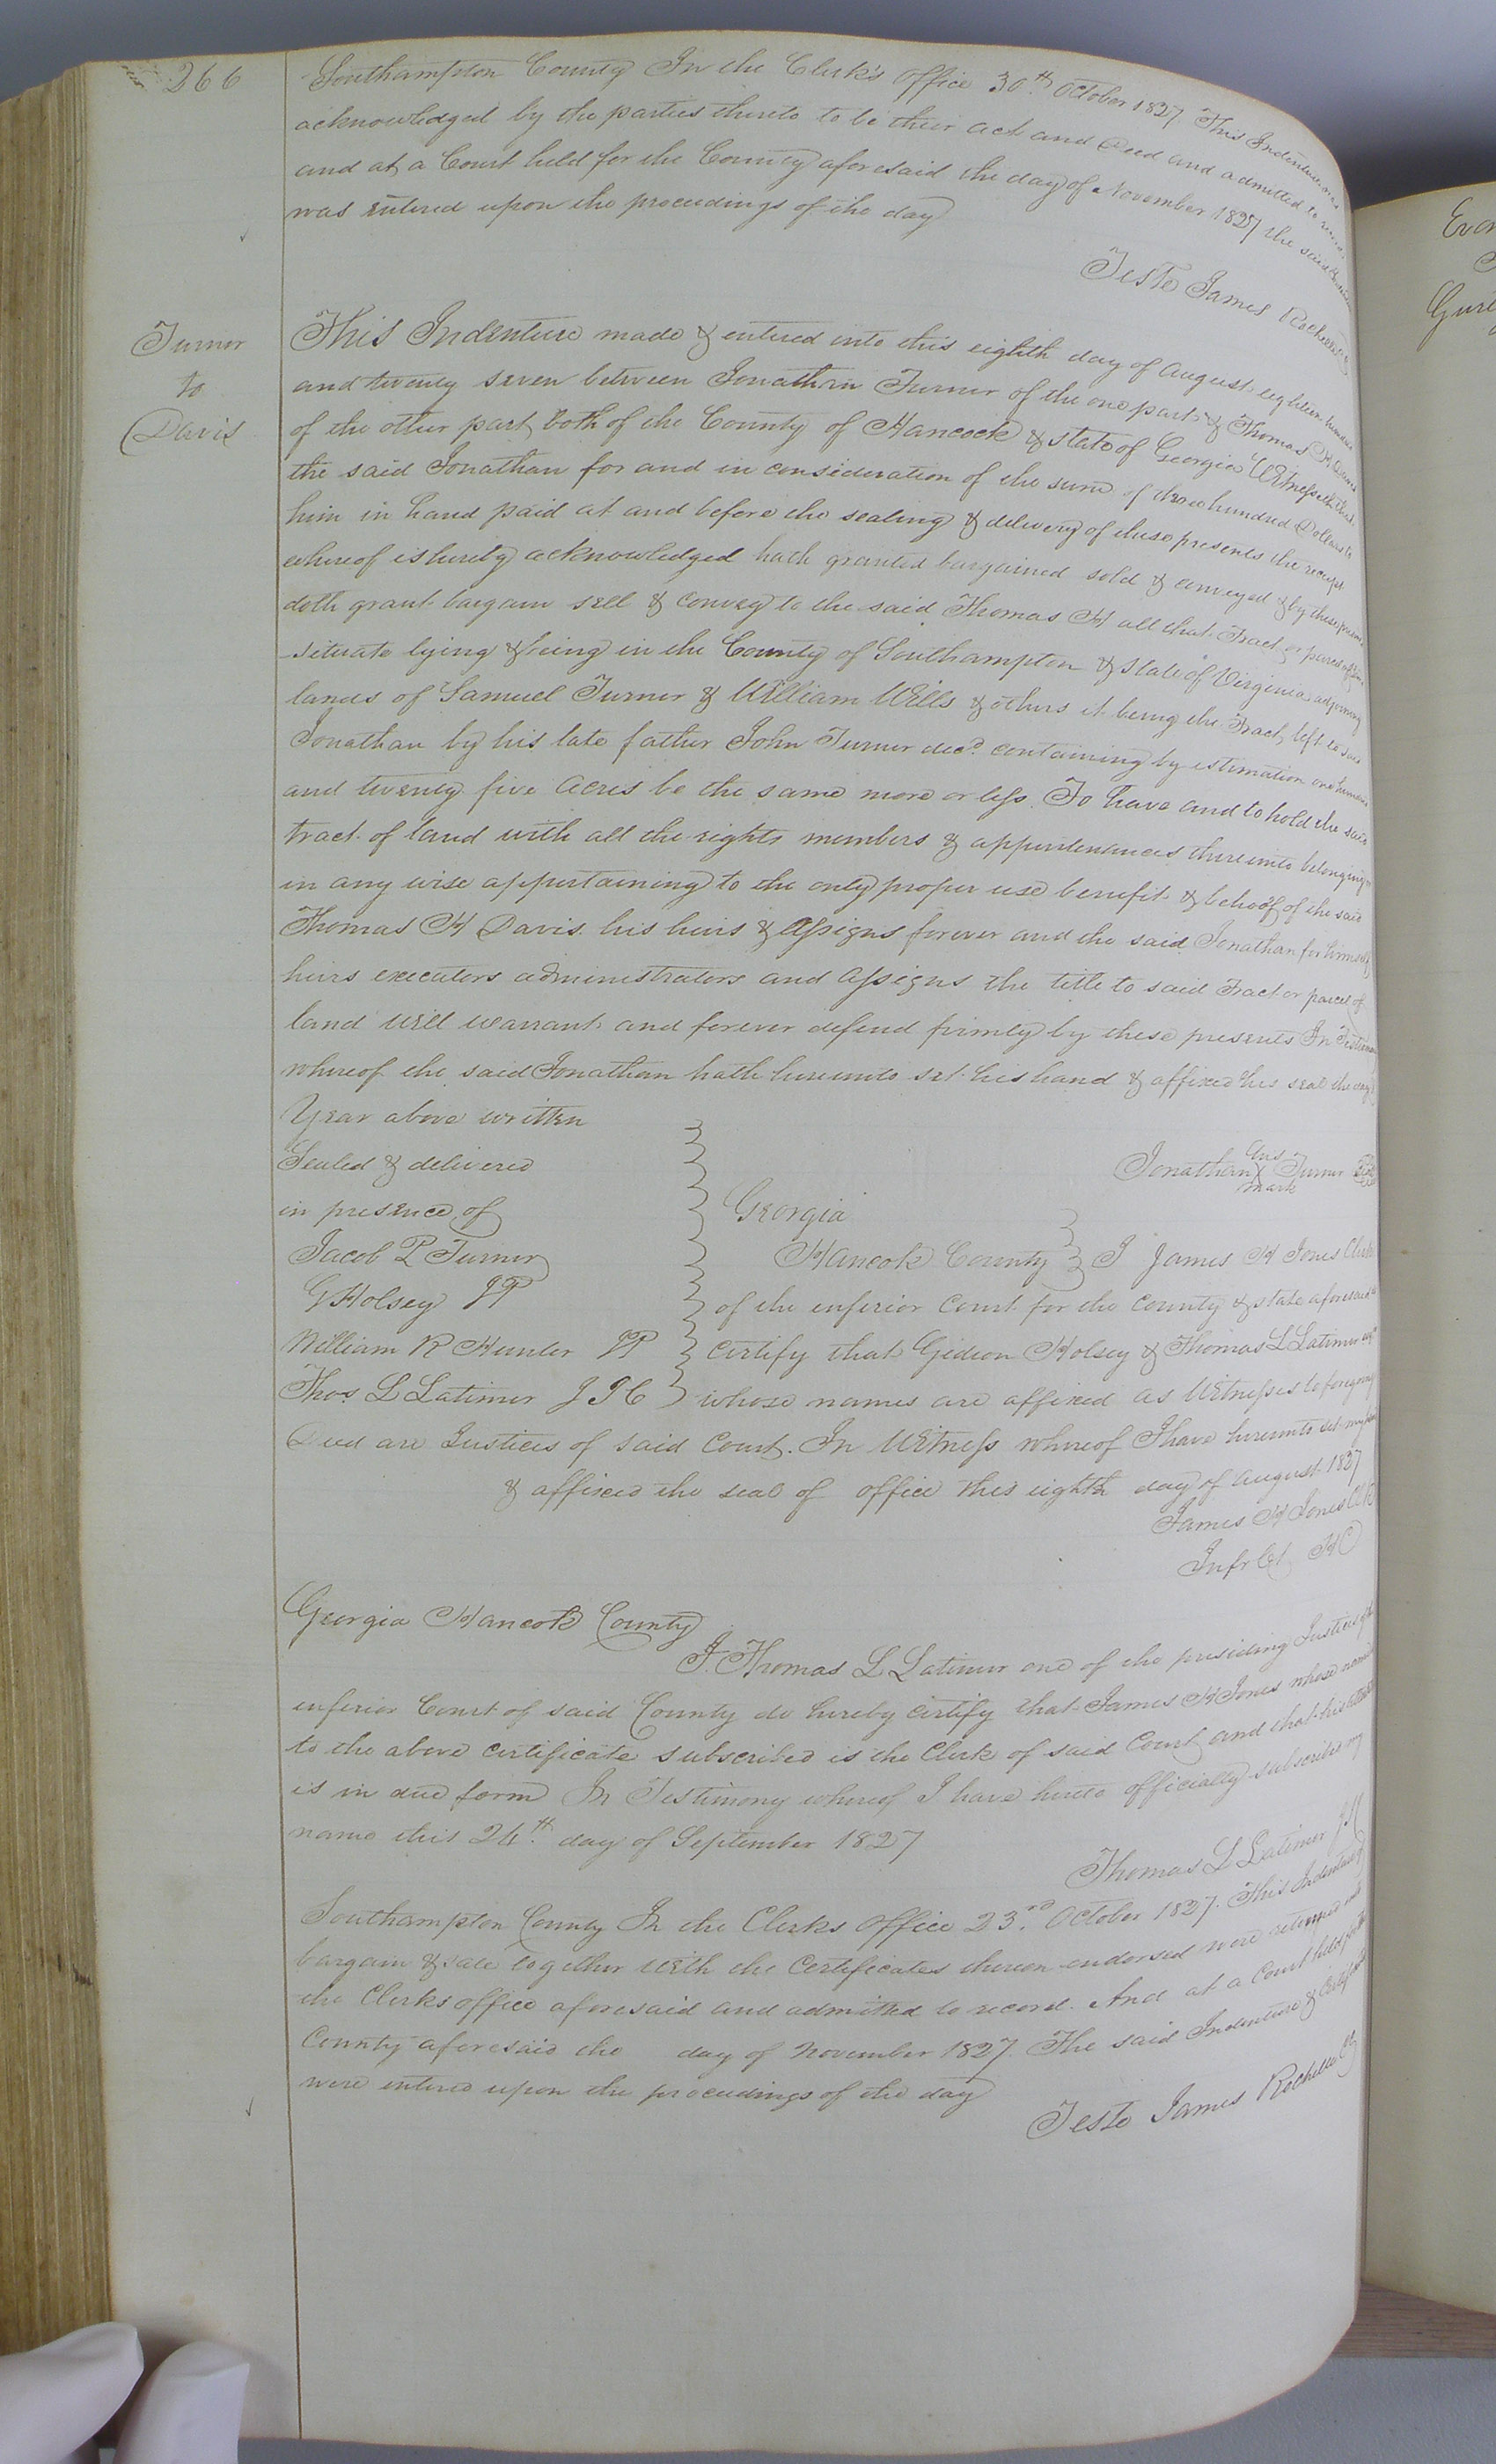 266
Southampton County In the Clerk's Office 30th October 1827 This Indenture was
acknowledged by the parties thereto to be their act and Deed and admitted to record
and at a Court held for the County aforesaid the day of November 1827 the said Indenture
was entered upon the proceedings of the day
Teste James Rochelle Clk
Turner
to
Davis
This Indenture made & entered into this eighth day of August eighteen hundred
and twenty seven between Jonathan Turner of the one part & Thomas H Davis
of the other part both of the County of Hancock & state of Georgia Witnesseth that
the said Jonathan for and in consideration of the sum of three hundred Dollars to
him in hand paid at and before the sealing & delivery of these presents the receipt
whereof is hereby acknowledged hath granted bargained sold & conveyed & by these presents
doth grant bargain sell & convey to the said Thomas H all that Tract or parcel of land
situate lying & being in the County of Southampton & state of Virginia adjoining
lands of Samuel Turner & William Wells & others it being the Tract left to said
Jonathan by his late father John Turner decd. containing by estimation one hundred
and twenty five acres be the same more or less To have and to hold the said
tract of land with all the rights members & appurtenances thereunto belonging
in any wise appertaining to the only proper use benefit & behoof of the said
Thomas H Davis his heirs & assigns forever and the said Jonathan for himself
heirs executors administrators and assigns the title to said Tract or parcel of
land will warrant and forever defend firmly by these presents In Testimony
whereof the said Jonathan hath hereunto set his hand & affixed his seal the day
Year above written
Sealed & delivered
in presence of
Jacob P Turner
G Holsey JP
William R Hunter JP
Thos. L Latimer J I C
Jonathan his X mark Turner Seal
Georgia
Hancock County } I James H Jones Clerk
of the inferior Court for the County & state aforesaid
Certify that Gideon Holsey & Thomas L Latimer esqr
whose names are affixed as Witnesses to foregoing
Deed are Justices of said Court. In Witness whereof I have hereunto set my hand
& affixed the seal of office this eighth day of August 1827
James H Jones Clk
Infr Ct H C
Georgia Hancock County
I. Thomas L Latimer one of the presiding Justices of the
inferior Court of said County do hereby certify that James H Jones whose name is
to the above certificate subscribed is the Clerk of said Court and that his attestation
is in due form In Testimony whereof I have hereto officially subscribed my
name this 24th. day of September 1827
Thomas L Latimer JIC
Southampton County In the Clerks Office 23rd October 1827. This Indenture of
bargain & sale together with the Certificates thereon endorsed were returned into
the Clerks office aforesaid and admitted to record. And at a Court held for the
County aforesaid the day of November 1827. The said Indenture & Certificates
were entered upon the proceedings of the day
Teste James Rochelle Clk